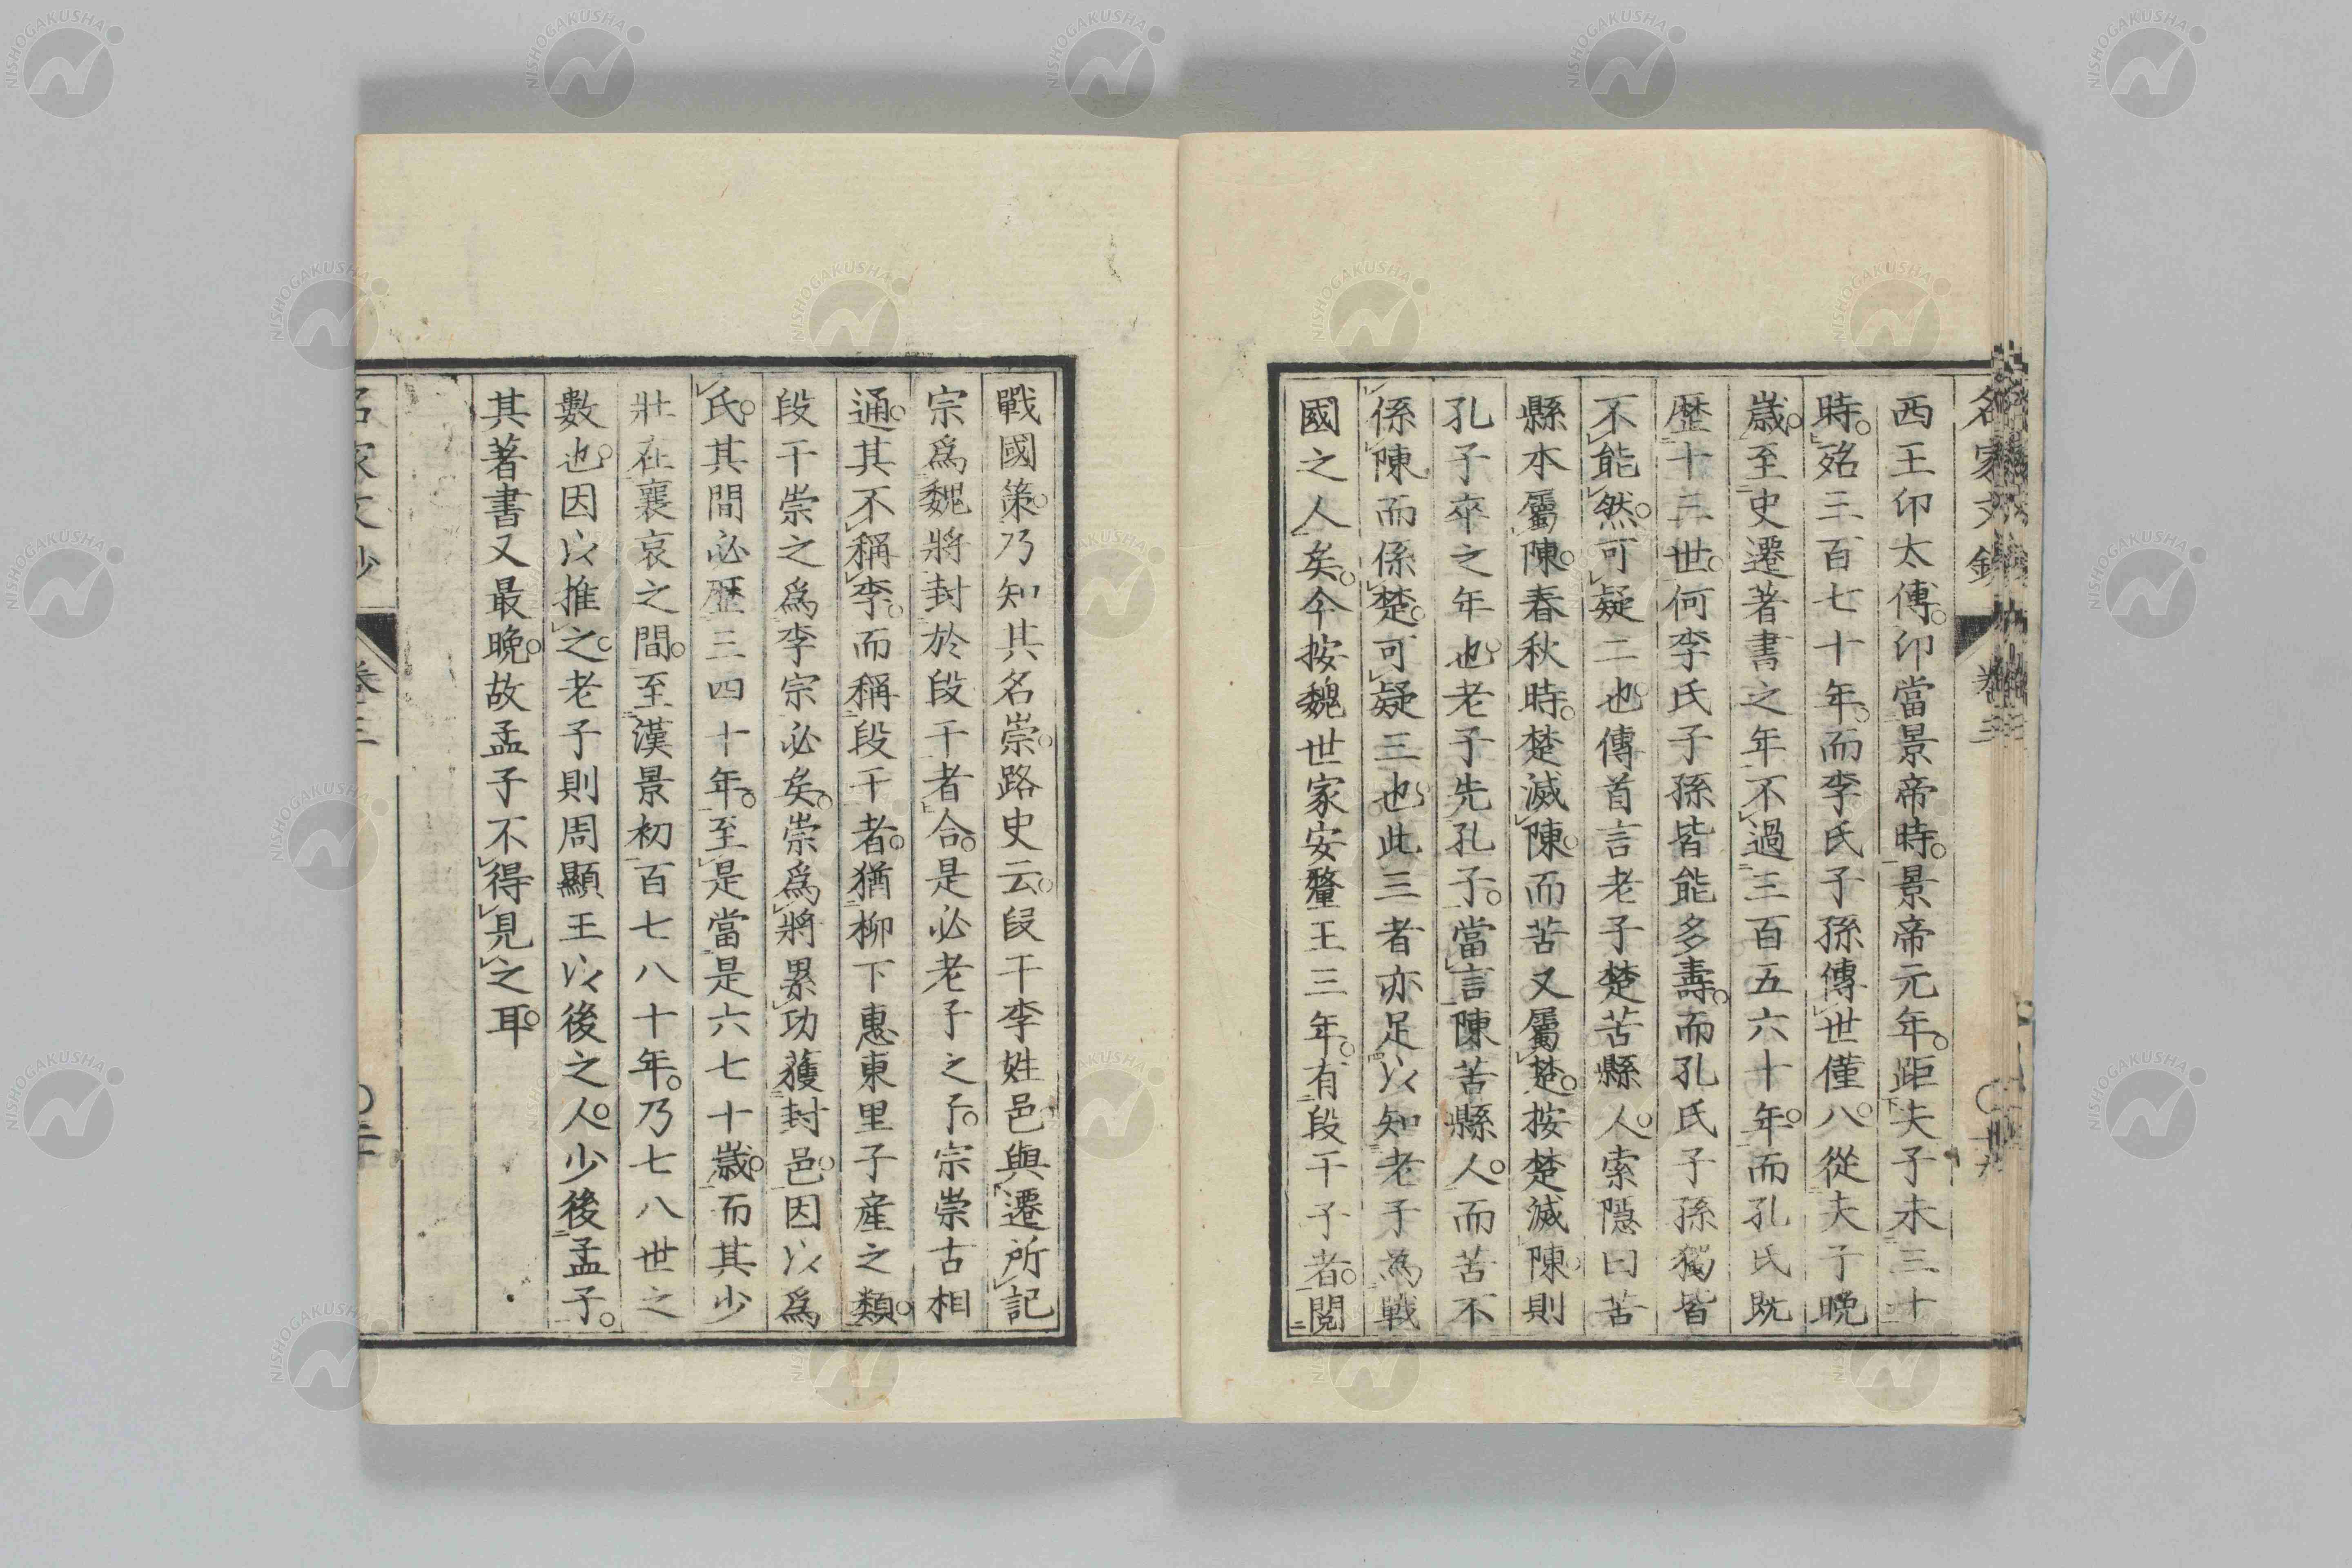 西王卬太傅。卬當景帝時。景帝元年。距夫子未三十
時。殆三百七十年。而李氏子孫傳世僅八。從夫子晚
歲。至史遷著書之年不過三百五六十年。而孔氏既
歷十三世。何李氏子孫皆能多壽。而孔氏子孫獨皆
不能然。可疑二也。傳首言老子楚苦縣人。索隱曰苦
縣本屬陳。春秋時。楚滅陳。而苦又屬楚。按楚滅陳。則
孔子卒之年也。老子先孔子。當言陳苦縣人。而苦不
係陳而係楚。可疑三也。此三者亦足以知老子為戰
國之人矣。今按魏世家安釐王三年。有段干子者。閲
戰國策。乃知其名崇。路史云。段干李姓邑。與遷所記
宗爲魏將封於段干者合。是必老子之子。宗崇古相
通。其不稱李。而稱段干者。猶柳下惠東里子産之類。
段干崇之爲李宗必矣。崇爲將累功獲封邑。因以爲
氏。其間必歷三四十年。至是當是六七十歲。而其少
壯在襄哀之間。至漢景初百七八十年。乃七八世之
數也。因以推之。老子則周顯王以後之人。少後孟子。
其著書又最晩。故孟子不得見之耳。
名家文鈔
卷三